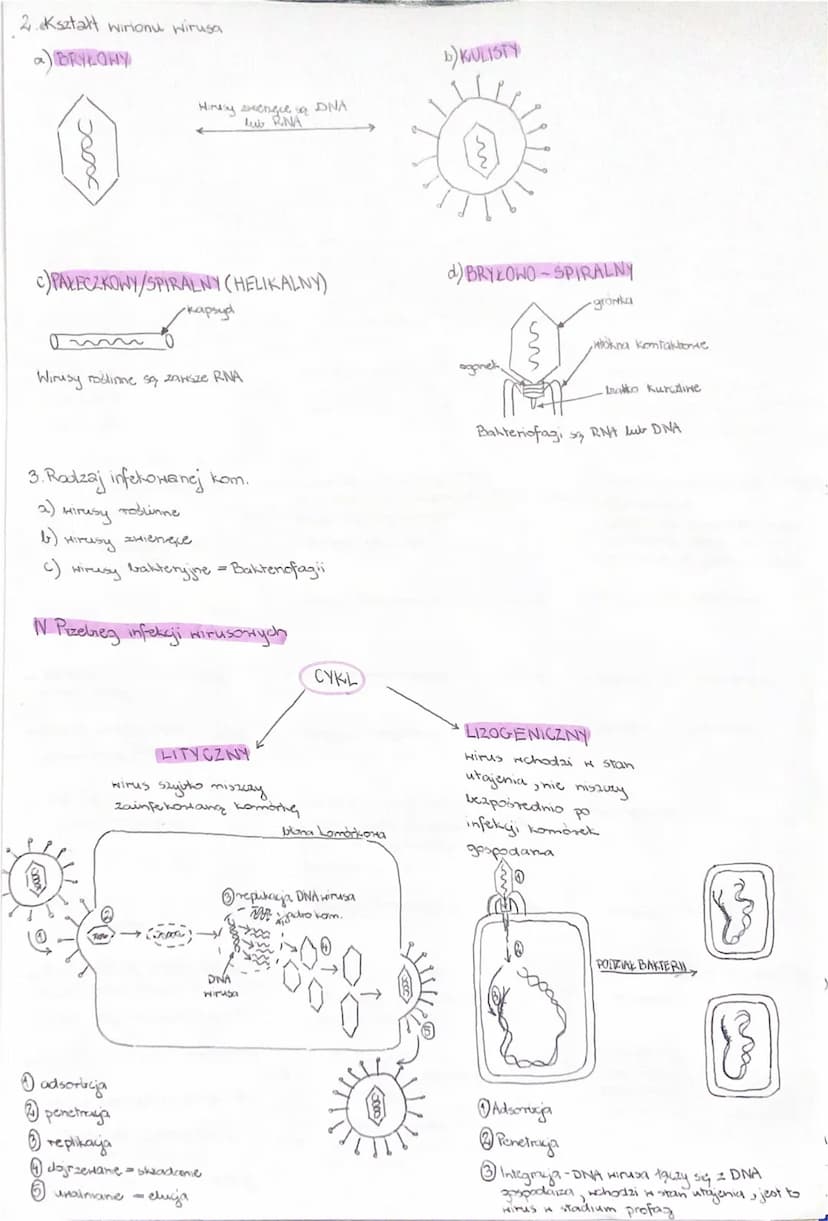 2. Kształt wirionu wirusa
a) BRYŁOWY
b) KULISTY
Wirusy zwierzęce są DNA
lub RNA
c) PAŁECZKOWY/SPIRALNY (HELIKALNY)
kapsyd
Wirusy roślinne są zawsze RNA
d) BRYŁOWO-SPIRALNY
główka
włókna kontaktowe
ogonek
białko kurczliwe
Bakteriofagi są RNA lub DNA
3. Rodzaj infekowanej kom.
a) wirusy roślinne
b) wirusy zwierzęce
c) wirusy bakteryjne = Bakteriofagii
IV Przebieg infekcji wirusowych
CYKL
LITYCZNY
wirus szybko niszczy
zainfekowaną komórkę
LIZOGENICZNY
wirus wchodzi w stan
utajenia, nie niszczy
bezpośrednio po
infekcji komórek
gospodarza
błona komórkowa
③ replikacja DNA wirusa
jądro kom.
①
②
④
DNA
wirusa
⑤
①
②
③
PODZIAŁ BAKTERII
① adsorbcja
② penetracja
③ replikacja
④ dojrzewanie = składanie
⑤ uwalnianie = elucja
① Adsorbcja
② Penetracja
③ Integracja - DNA wirusa łączy się z DNA
gospodarza, wchodzi w stan utajenia, jest to
wirus w stadium profag